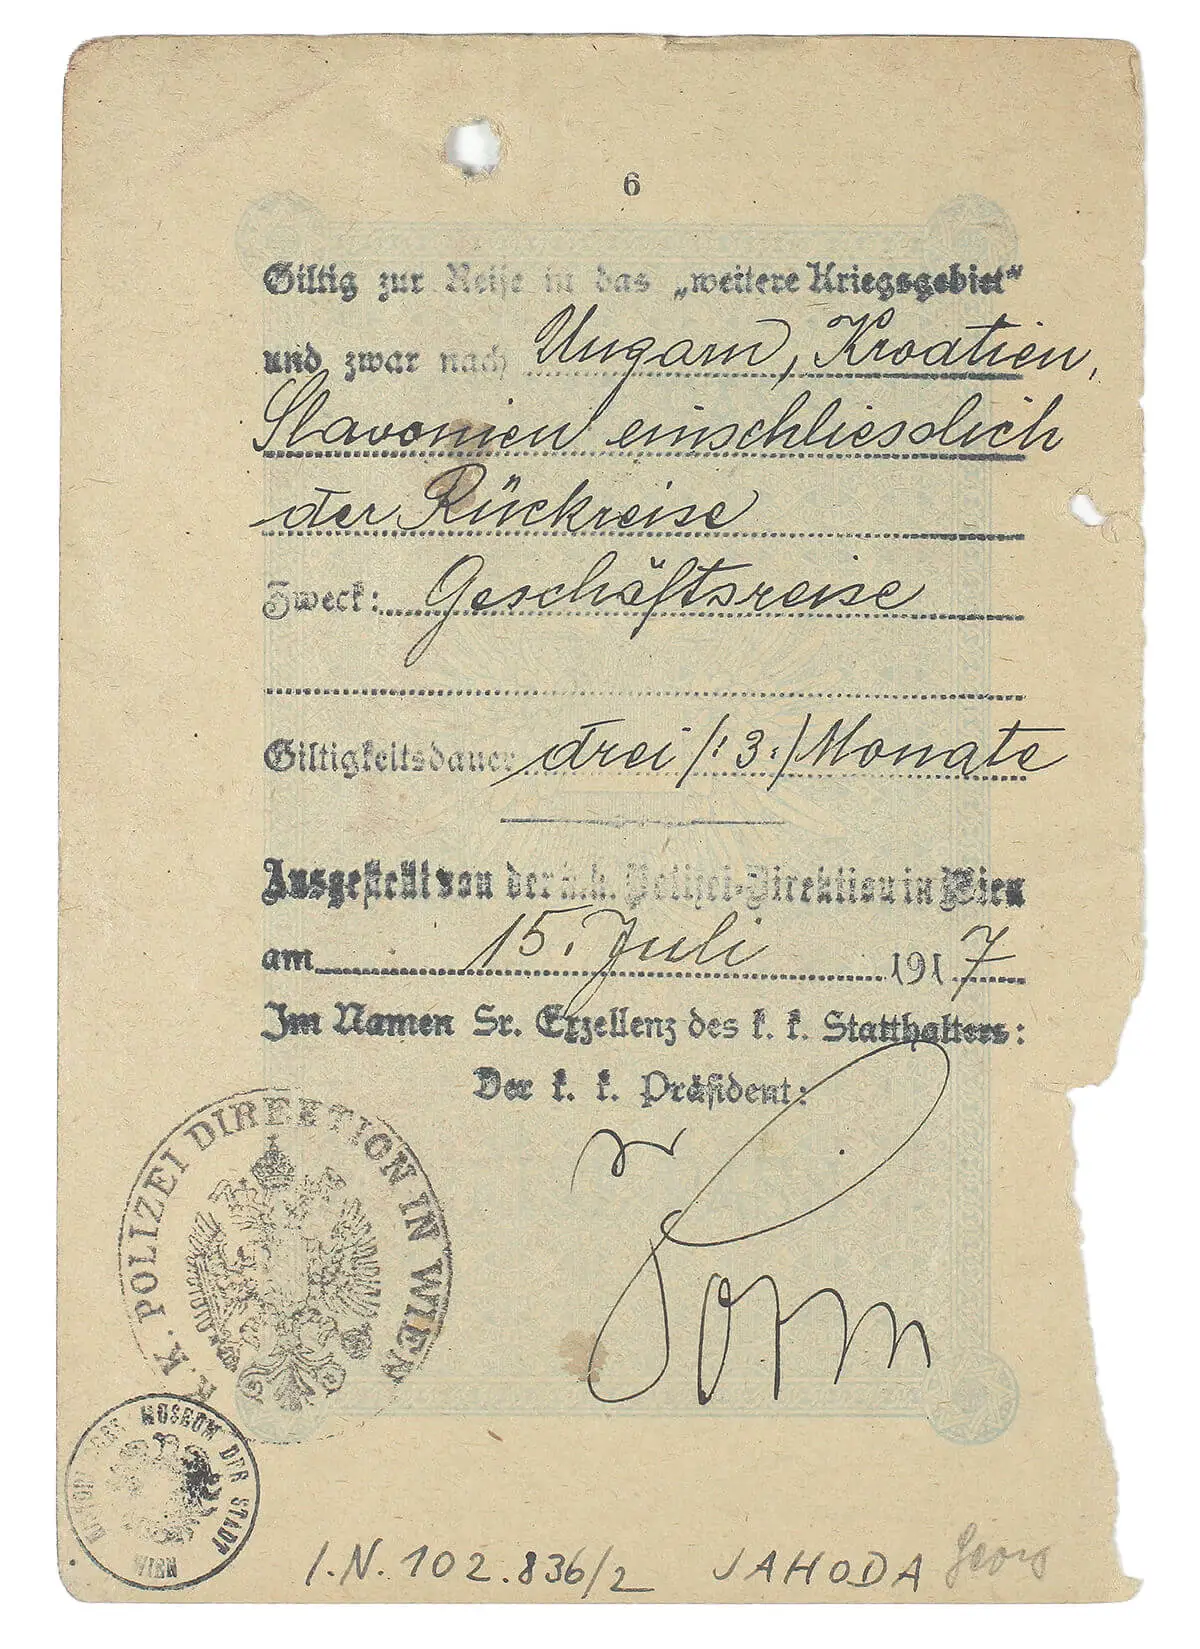 6
Giltig zur Reise in das „weitere Kriegsgebiet“
und zwar nach Ungarn, Kroatien,
Slavonien einschliesslich
der Rückreise
Zweck: Geschäftsreise
Giltigkeitsdauer drei /: 3 :/ Monate
Ausgestellt von der k.k. Polizei-Direktion in Wien
am 15. Juli 1917
Im Namen Sr. Exzellenz des k. k. Statthalters:
Der k. k. Präsident:
K. K. POLIZEI DIREKTION IN WIEN
MUSEUM DER STADT
WIEN
I.N. 102.836/2 JAHODA Georg